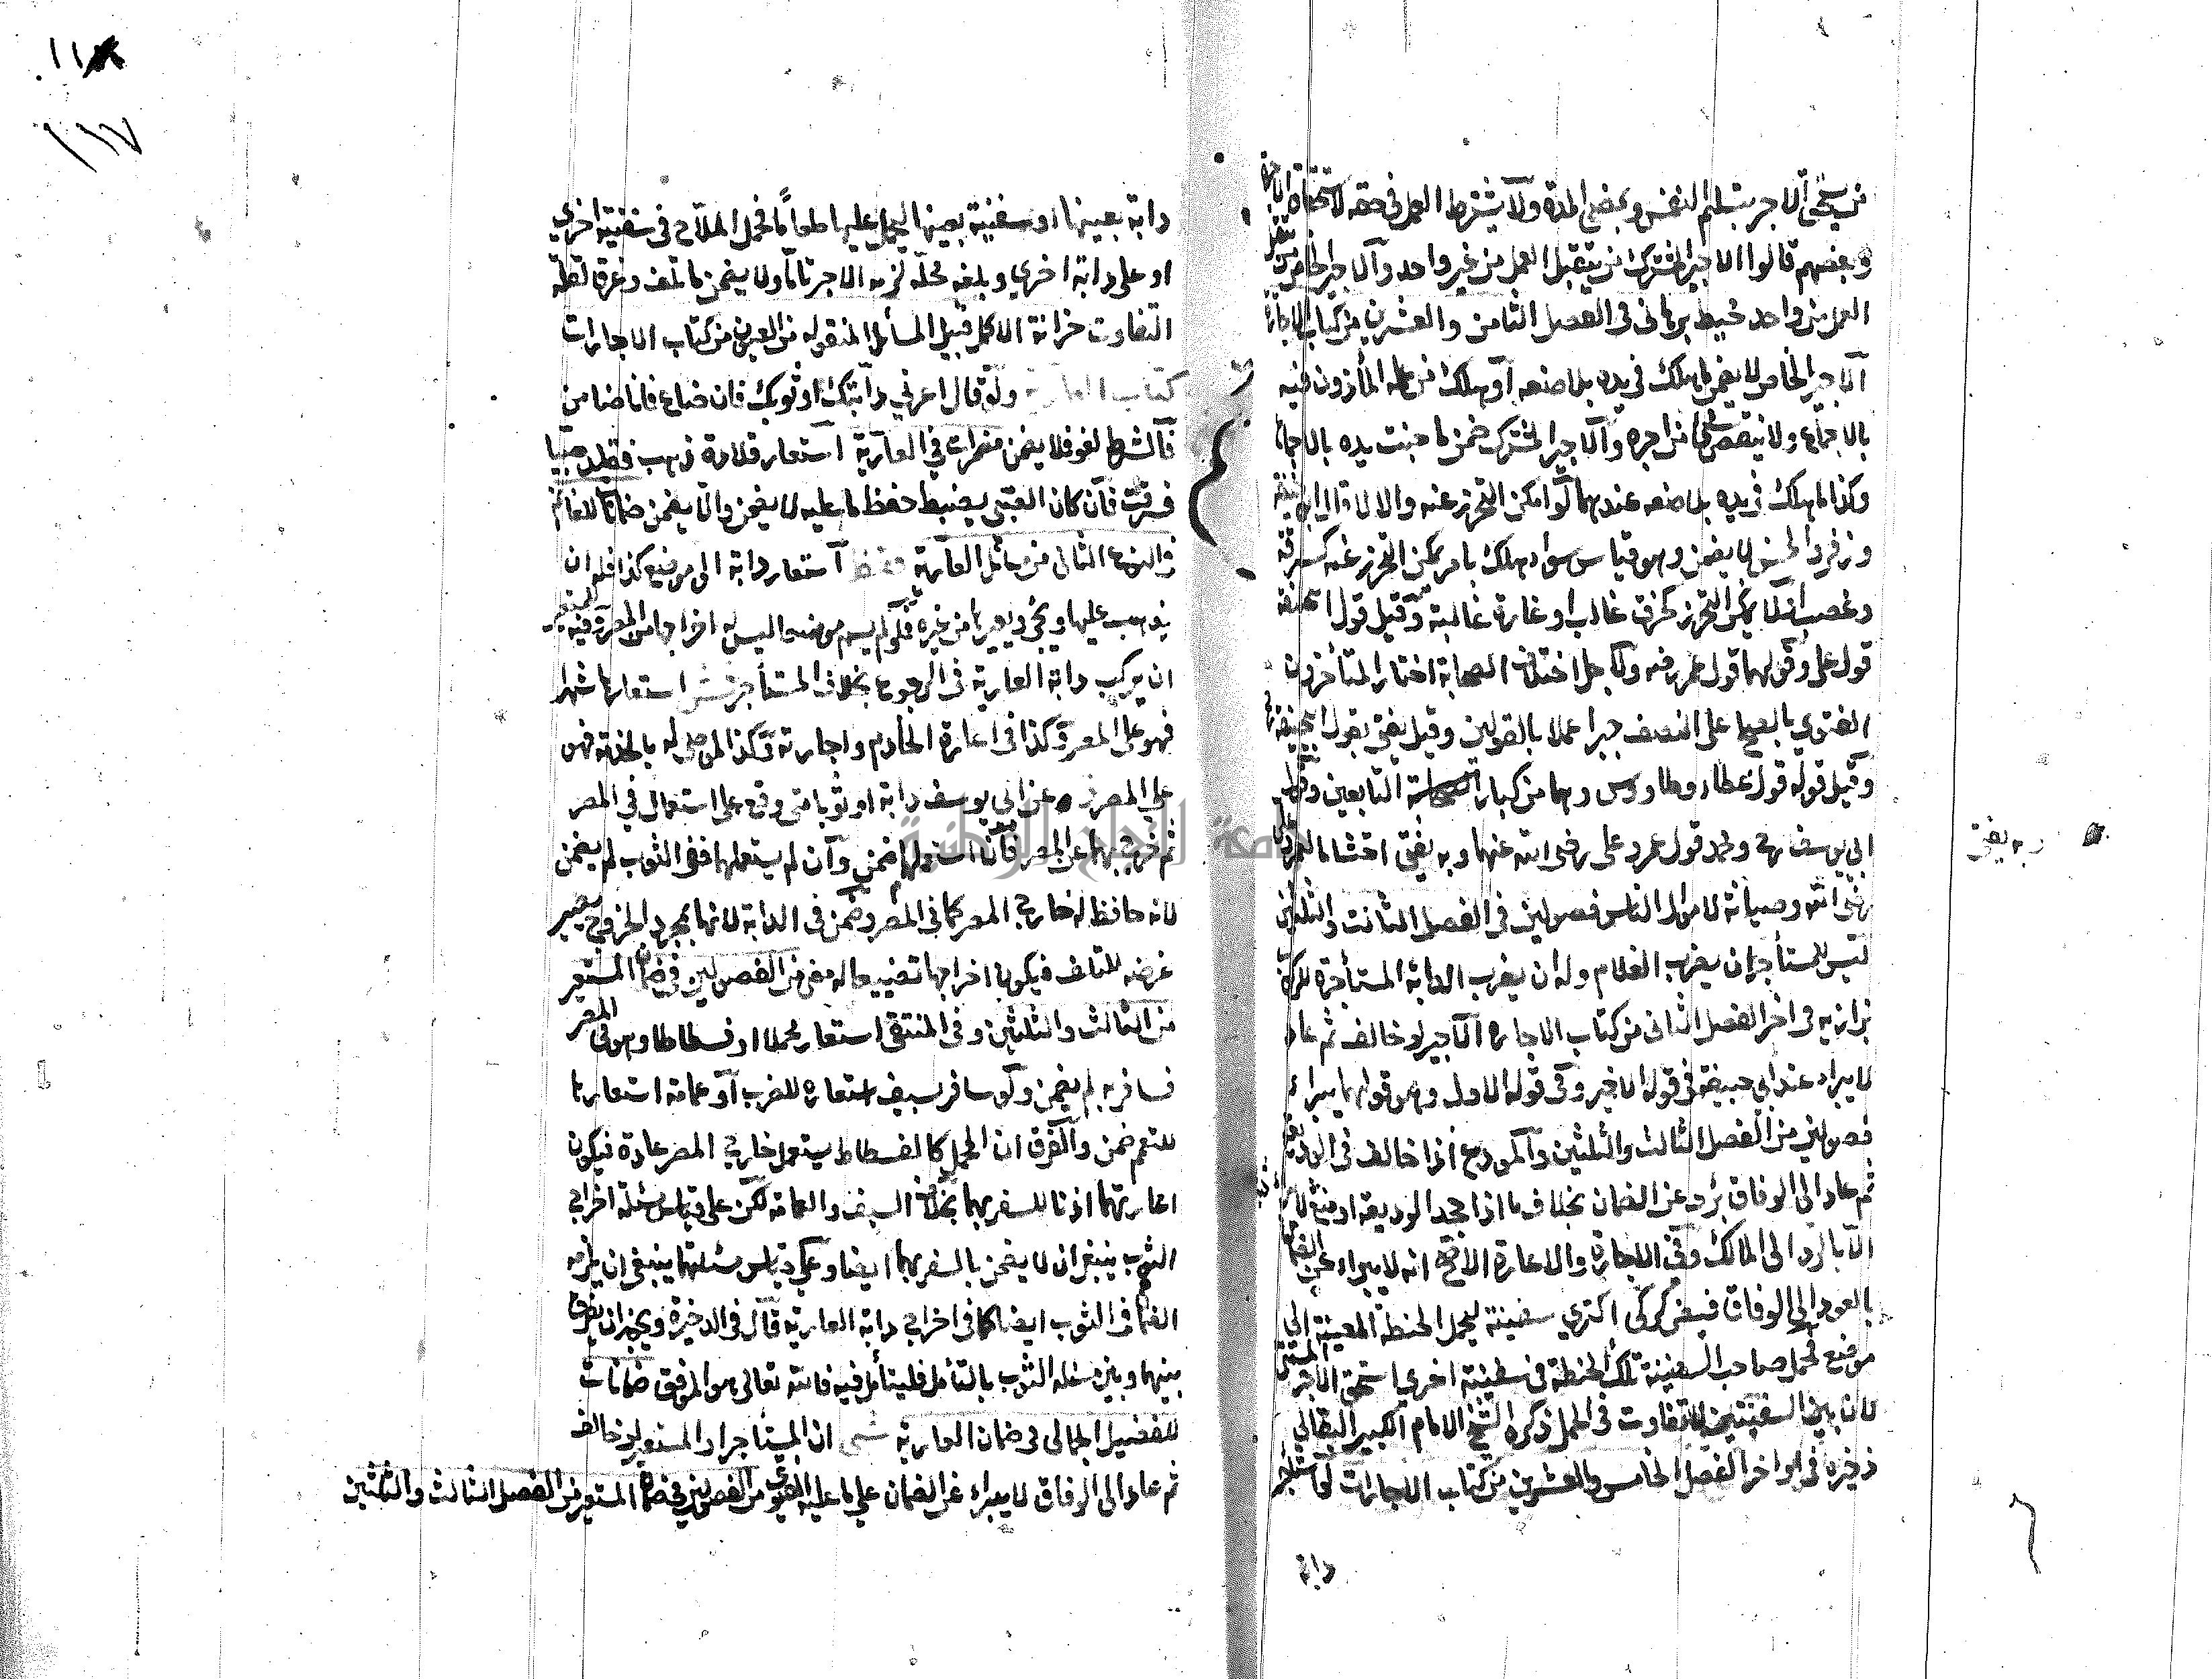 من يستحق الاجر بتسليم النفس وبمضي المدة ولا يشترط العمل في حقه لاستحقاق الاجرة
وبعضهم قالوا الاجير المشترك من يتقبل العمل من غير واحد والاجير الخاص من يتقبل
العمل من واحد محيط برهاني في الفصل الثامن والعشرين من كتاب الاجارة
الاجير الخاص لا يضمن ما هلك في يده بلا صنعه او هلك من عمله المأذون فيه
بالاجماع ولا ينقص من اجره والاجير المشترك ضمن ما جنت يده بالاجماع
وكذا ما هلك في يده بلا صنعه عندهما لو امكن التحرز عنه والا لا قال ابو حنيفة
وزفر والحسن لا يضمن وهو قياس سواء هلك بامر يمكن التحرز عنه كسرقة
وغصب او لا يمكن التحرز كحرق غالب او غارة غالبة وقيل قول ابي حنيفة
قول علي وقولهما قول عمر رضه ولاجل اختلاف الصحابة اختار المتأخرون
الفتوي بالصلح على النصف جبرا عملا بالقولين وقيل يفتى بقول ابي حنيفة
وقيل قوله قول عطاء وطاوس وهما من كبار التابعين وقول
ابي يوسف رح ومحمد قول عمر وعلي رضى الله عنهما وبه يفتى احتشاما لعمر وعلي
وبه يفتى
رضى الله وصيانة لاموال الناس فصولين في الفصل الثالث والثلثين
ليس للمستأجر ان يضرب الغلام وله ان يضرب الدابة المستأجرة للركوب
بزازيه في اخر الفصل الثاني من كتاب الاجارة الاجير لو خالف ثم عاد
لا يبراء عند ابي حنيفة في قوله الاخير وفي قوله الاول وهو قولهما يبراء
فصولين من الفصل الثالث والثلثين والمودع اذا خالف في الوديعة
ثم عاد الى الوفاق برء عن الضمان بخلاف ما اذا جحد الوديعة او منع
الا بالرد الى المالك وفي الاجارة والاعارة الاصح انه لا يبراء عن الضمان
بالعود الى الوفاق اكتري سفينة ليحمل الحنطة المعينة الى
موضع فحمل صاحب السفينة تلك الحنطة في سفينة اخري استحق الاجر المسمى
لان بين السفينتين لا تفاوت في الحمل ذكره الشيخ الامام الكبير البقالي
ذخيره في اواخر الفصل الخامس والعشرين من كتاب الاجارات لو استأجر
دابة
١١٨
١١٧
دابة بعينها او سفينة بعينها ليحمل عليها طعاما فحمل الملاح في سفينة اخري
او على دابة اخري وبلغه محله لزمه الاجر تاما ولا يضمن ما تلف وغرق لقلة
التفاوت خزانة الاكمل قبيل المسائل المنقوله من العيون من كتاب الاجارات
كتاب العارية ولو قال اعرني دابتك او ثوبك فان ضاع فانا ضامن
فالشرط لغو فلا يضمن مضمرات في العارية استعار قلادة ذهب فقلد صبيا
فسرقت فان كان الصبي يضبط حفظ ما عليه لا يضمن والا يضمن ضمانات للغانم
في النوع الثاني من مسائل العارية استعار دابة الى موضع كذا فله ان
يذهب عليها ويجئ ويعيرها من غيره فلو لم يسم موضعا ليس له اخراجها من المصر
ان يركب دابة العارية في الرجوع بخلاف المستأجر استعارها شهرا
فهو على المصر وكذا في اعارة الخادم واجارته وكذا الموصى له بالخدمة فهو
على المصر عن ابي يوسف دابة او ثوبا متى وقع على استعمال في المصر
ثم خرج بهما عن المصر فان استعملهما ضمن وان لم يستعملهما ففي الثوب لم يضمن
لانه حافظ له خارج المصر كما في المصر وضمن في الدابة لانها بمجرد الخروج يصير
عرضه للتلف فيكون اخراجها تضييعا له معنى من الفصولين في ضمان المستعير
من الثالث والثلثين وفي المنتقى استعار محملا او فسطاطا وهو في المصر
فسافر به لم يضمن ولو سافر بسيف استعاره للضرب او عمامة استعارها
للتعمم ضمن والفرق ان المحمل كالفسطاط يستعمل خارج المصر عادة فيكون
اعارتهما اذنا للسفر بهما بخلاف السيف والعمامة لكن على قياس مسئلة اخراج
الثوب ينبغي ان لا يضمن بالسفر بهما ايضا وعلى قياس مسئلتهما ينبغي ان يلزمه
الضمان في الثوب ايضا كما في اخراج دابة العارية قال في الذخيرة ويجوز ان يفرق
بينهما وبين مسئلة الثوب بالتأمل فليتأمل فيه فالله تعالى هو الموفق ضمانات
للفضيل الجمالي في ضمان العارية ان المستأجر او المستعير لو خالف
ثم عاد الى الوفاق لا يبراء عن الضمان على ما عليه الفتوي من الفصولين في ضمان المستعير من الفصل الثالث والثلثين
جامعة النجاح الوطنية